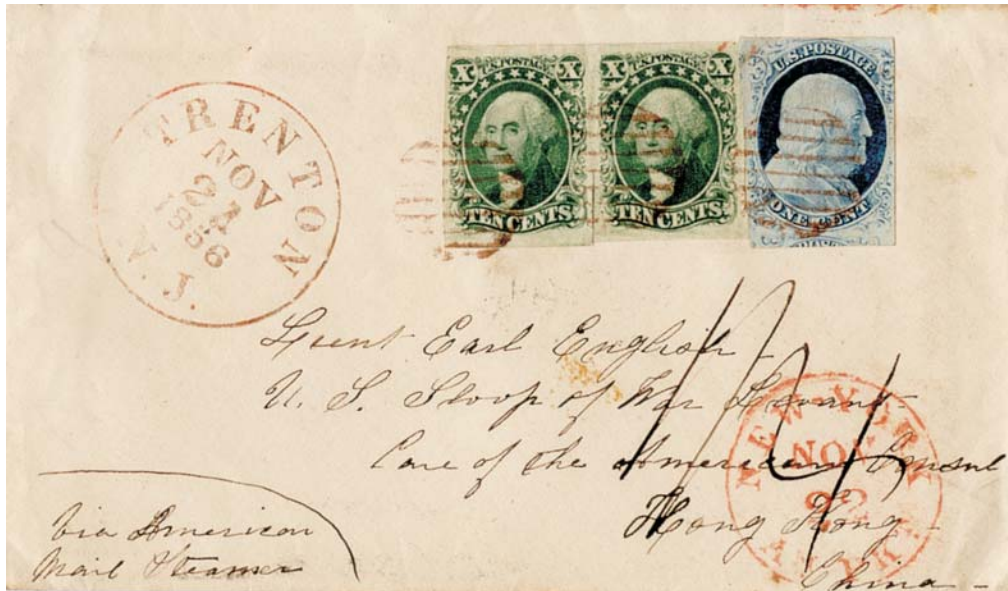 TRENTON
NOV
24
1856
N. J.
X U.S. POSTAGE X
TEN CENTS
X U.S. POSTAGE X
TEN CENTS
U.S. POSTAGE
ONE CENT
Lieut Earl English
U. S. Sloop of War Levant
Care of the American Consul
Hong Kong
China
Via American
Mail Steamer
NEW-YORK
NOV
AM. PKT.